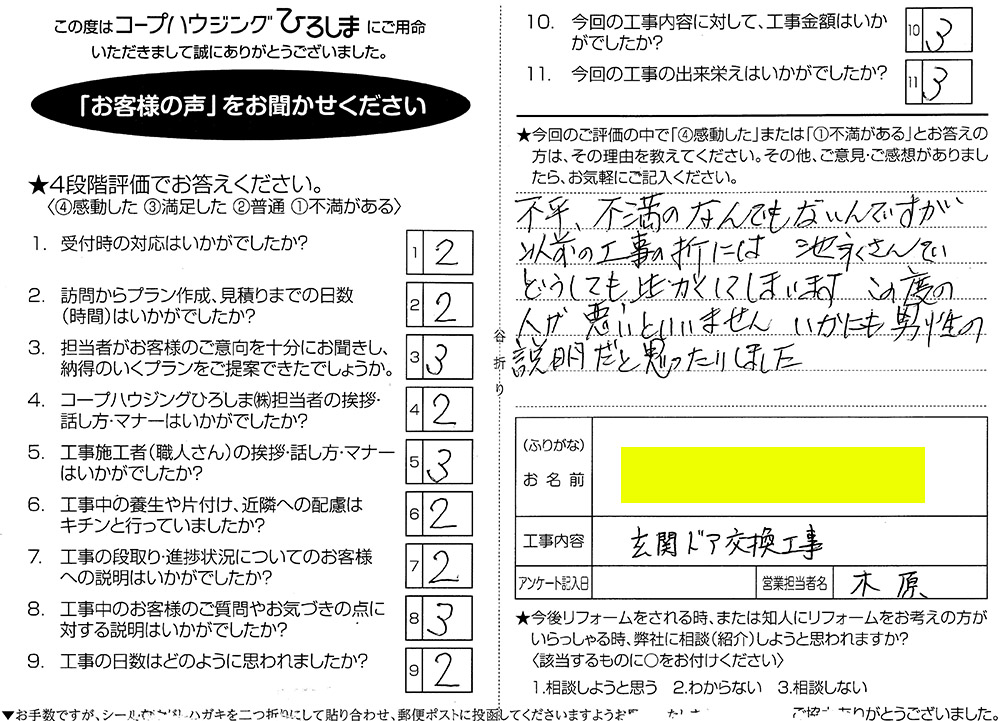 この度はコープハウジングひろしまにご用命
いただきまして誠にありがとうございました。
「お客様の声」をお聞かせください
★4段階評価でお答えください。
〈④感動した ③満足した ②普通 ①不満がある〉
1. 受付時の対応はいかがでしたか?
1 2
2. 訪問からプラン作成、見積りまでの日数
(時間)はいかがでしたか?
2 2
3. 担当者がお客様のご意向を十分にお聞きし、
納得のいくプランをご提案できたでしょうか。
3 3
4. コープハウジングひろしま㈱担当者の挨拶・
話し方・マナーはいかがでしたか?
4 2
5. 工事施工者(職人さん)の挨拶・話し方・マナー
はいかがでしたか?
5 3
6. 工事中の養生や片付け、近隣への配慮は
キチンと行っていましたか?
6 2
7. 工事の段取り・進捗状況についてのお客様
への説明はいかがでしたか?
7 2
8. 工事中のお客様のご質問やお気づきの点に
対する説明はいかがでしたか?
8 3
9. 工事の日数はどのように思われましたか?
9 2
谷折り
10. 今回の工事内容に対して、工事金額はいか
がでしたか?
10 3
11. 今回の工事の出来栄えはいかがでしたか?
11 3
★今回のご評価の中で「④感動した」または「①不満がある」とお答えの
方は、その理由を教えてください。その他、ご意見・ご感想がありまし
たら、お気軽にご記入ください。
不平、不満のなんでもないんですが
以前の工事の折には 池永さんでい
どうしても比がくしてしまいます この度の
人が 悪いといいません いかにも男性の
説明だと思ったりしました
(ふりがな)
お名前
工事内容 玄関ドア交換工事
アンケート記入日 営業担当者名 木原
★今後リフォームをされる時、または知人にリフォームをお考えの方が
いらっしゃる時、弊社に相談(紹介)しようと思われますか?
〈該当するものに○をお付けください〉
1.相談しようと思う 2.わからない 3.相談しない
▼お手数ですが、シール ハガキを二つ折りにして貼り合わせ、郵便ポストに投函してくださいますようお
ご協力ありがとうございました。